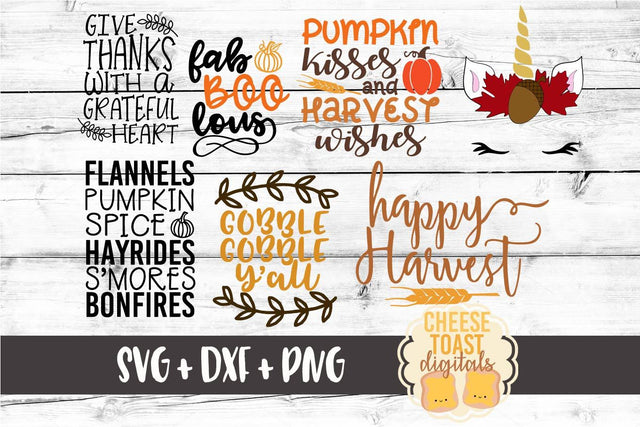 GIVE
THANKS
WITH A
GRATEFUL
HEART
fab
BOO
lous
PUMPKIN
kisses
and
HARVEST
wishes
FLANNELS
PUMPKIN
SPICE
HAYRIDES
S'MORES
BONFIRES
GOBBLE
GOBBLE
Y'all
happy
Harvest
SVG + DXF + PNG
CHEESE
TOAST
digitals